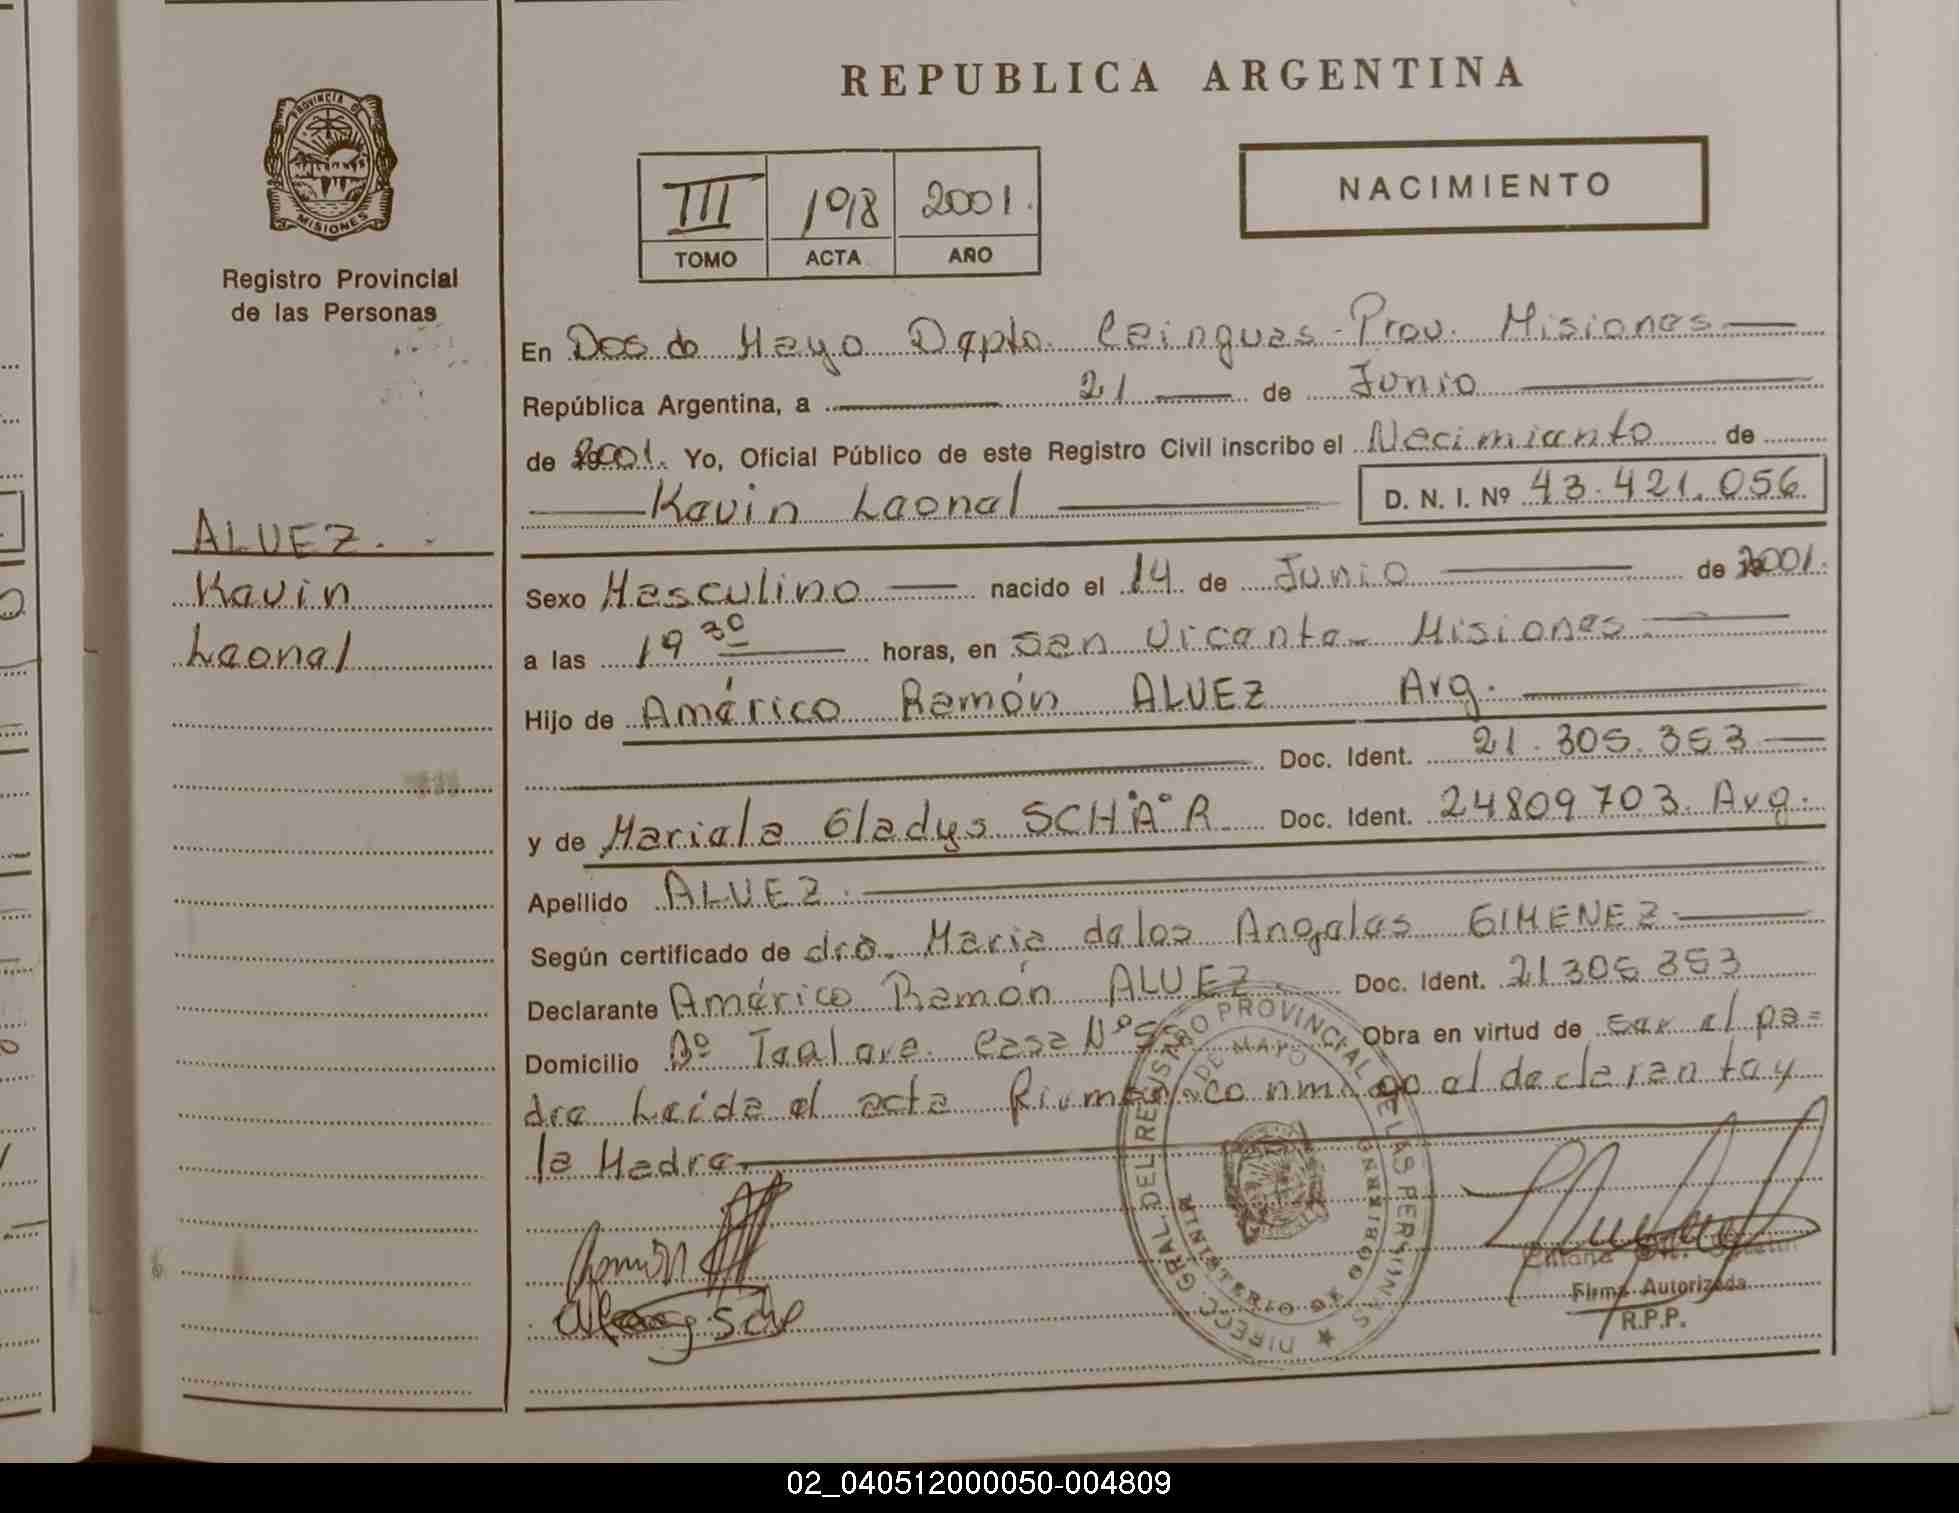 REPUBLICA ARGENTINA
PROVINCIA DE
MISIONES
Registro Provincial
de las Personas
III 198 2001.
TOMO ACTA AÑO
NACIMIENTO
En Dos de Mayo Depto. Cainguas - Prov. Misiones
República Argentina, a 21 de Junio
de 2001. Yo, Oficial Público de este Registro Civil inscribo el Nacimiento de
Kevin Leonel D. N. I. Nº 43.421.056
ALVEZ.
Kevin
Leonel
Sexo Masculino nacido el 14 de Junio de 2001.
a las 19 30 horas, en San Vicente - Misiones
Hijo de Américo Ramón ALVEZ Arg.
Doc. Ident. 21.305.353
y de Mariela Gladys SCHÄR Doc. Ident. 24809703. Arg.
Apellido ALVEZ.
Según certificado de dra. Maria de los Angeles GIMENEZ
Declarante Américo Ramón ALVEZ Doc. Ident. 21305353
Domicilio Bº Casa Nº Obra en virtud de ser el pa=
dre Leída el acta conmigo el declarante y
la Madre
DIRECC. GRAL. DEL REGISTRO PROVINCIAL DE LAS PERSONAS
DE MAYO
MINISTERIO DE GOBIERNO
Ramón
Firma Autorizada
R.P.P.
02_040512000050-004809